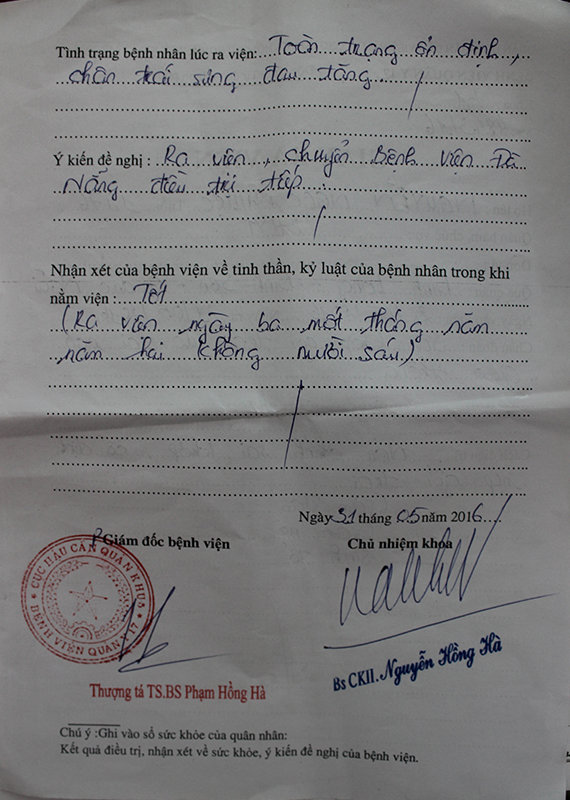 Tình trạng bệnh nhân lúc ra viện: Toàn trạng ổn định,
chân trái sưng đau tăng.
Ý kiến đề nghị : Ra viện, chuyển Bệnh viện Đà
Nẵng điều trị tiếp.
Nhận xét của bệnh viện về tinh thần, kỷ luật của bệnh nhân trong khi
nằm viện : Tốt
(Ra viện ngày ba mốt tháng năm
năm hai không mười sáu)
Ngày 31 tháng 05 năm 2016
Giám đốc bệnh viện
Chủ nhiệm khoa
CỤC HẬU CẦN QUÂN KHU 5
BỆNH VIỆN QUÂN Y 17
Thượng tá TS.BS Phạm Hồng Hà
Bs CKII. Nguyễn Hồng Hà
Chú ý :Ghi vào sổ sức khỏe của quân nhân:
Kết quả điều trị, nhận xét về sức khỏe, ý kiến đề nghị của bệnh viện.